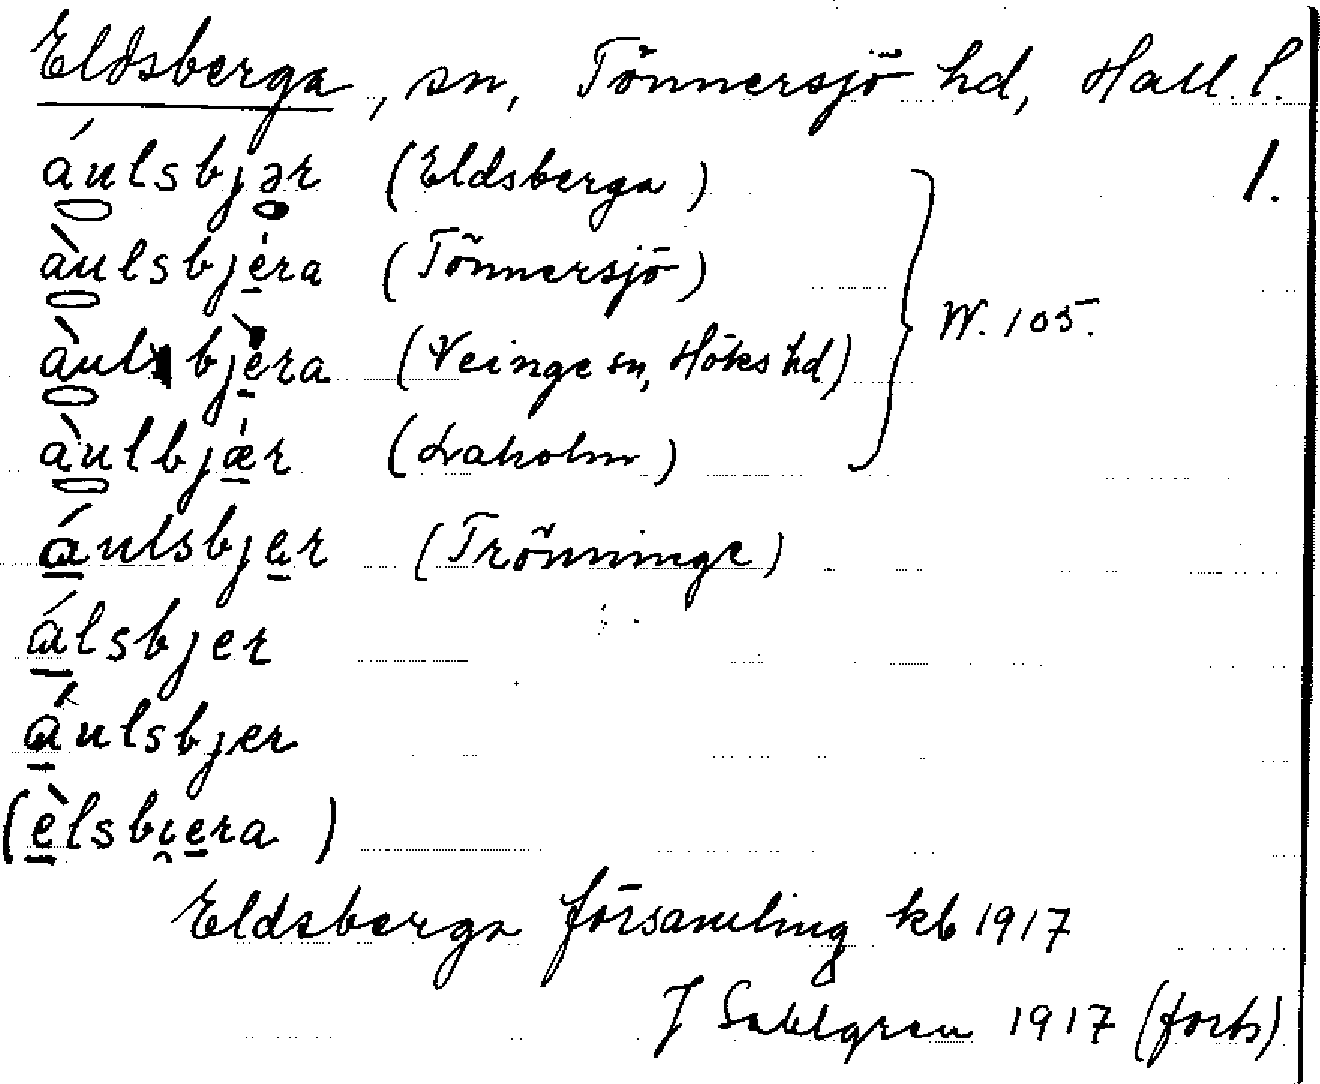 Eldsberga, sn, Tönnersjö hd, Hall. l.
1.
áulsbjər (Eldsberga)
àulsbjera (Tönnersjö)
W. 105.
àulsbjèra (Veinge sn, Höks hd)
àulbjær (Laholm)
áulsbjer (Trönninge)
álsbjer
áulsbjer
(èlsbi̯era)
Eldsberga församling kb 1917
J Sahlgren 1917 (forts)